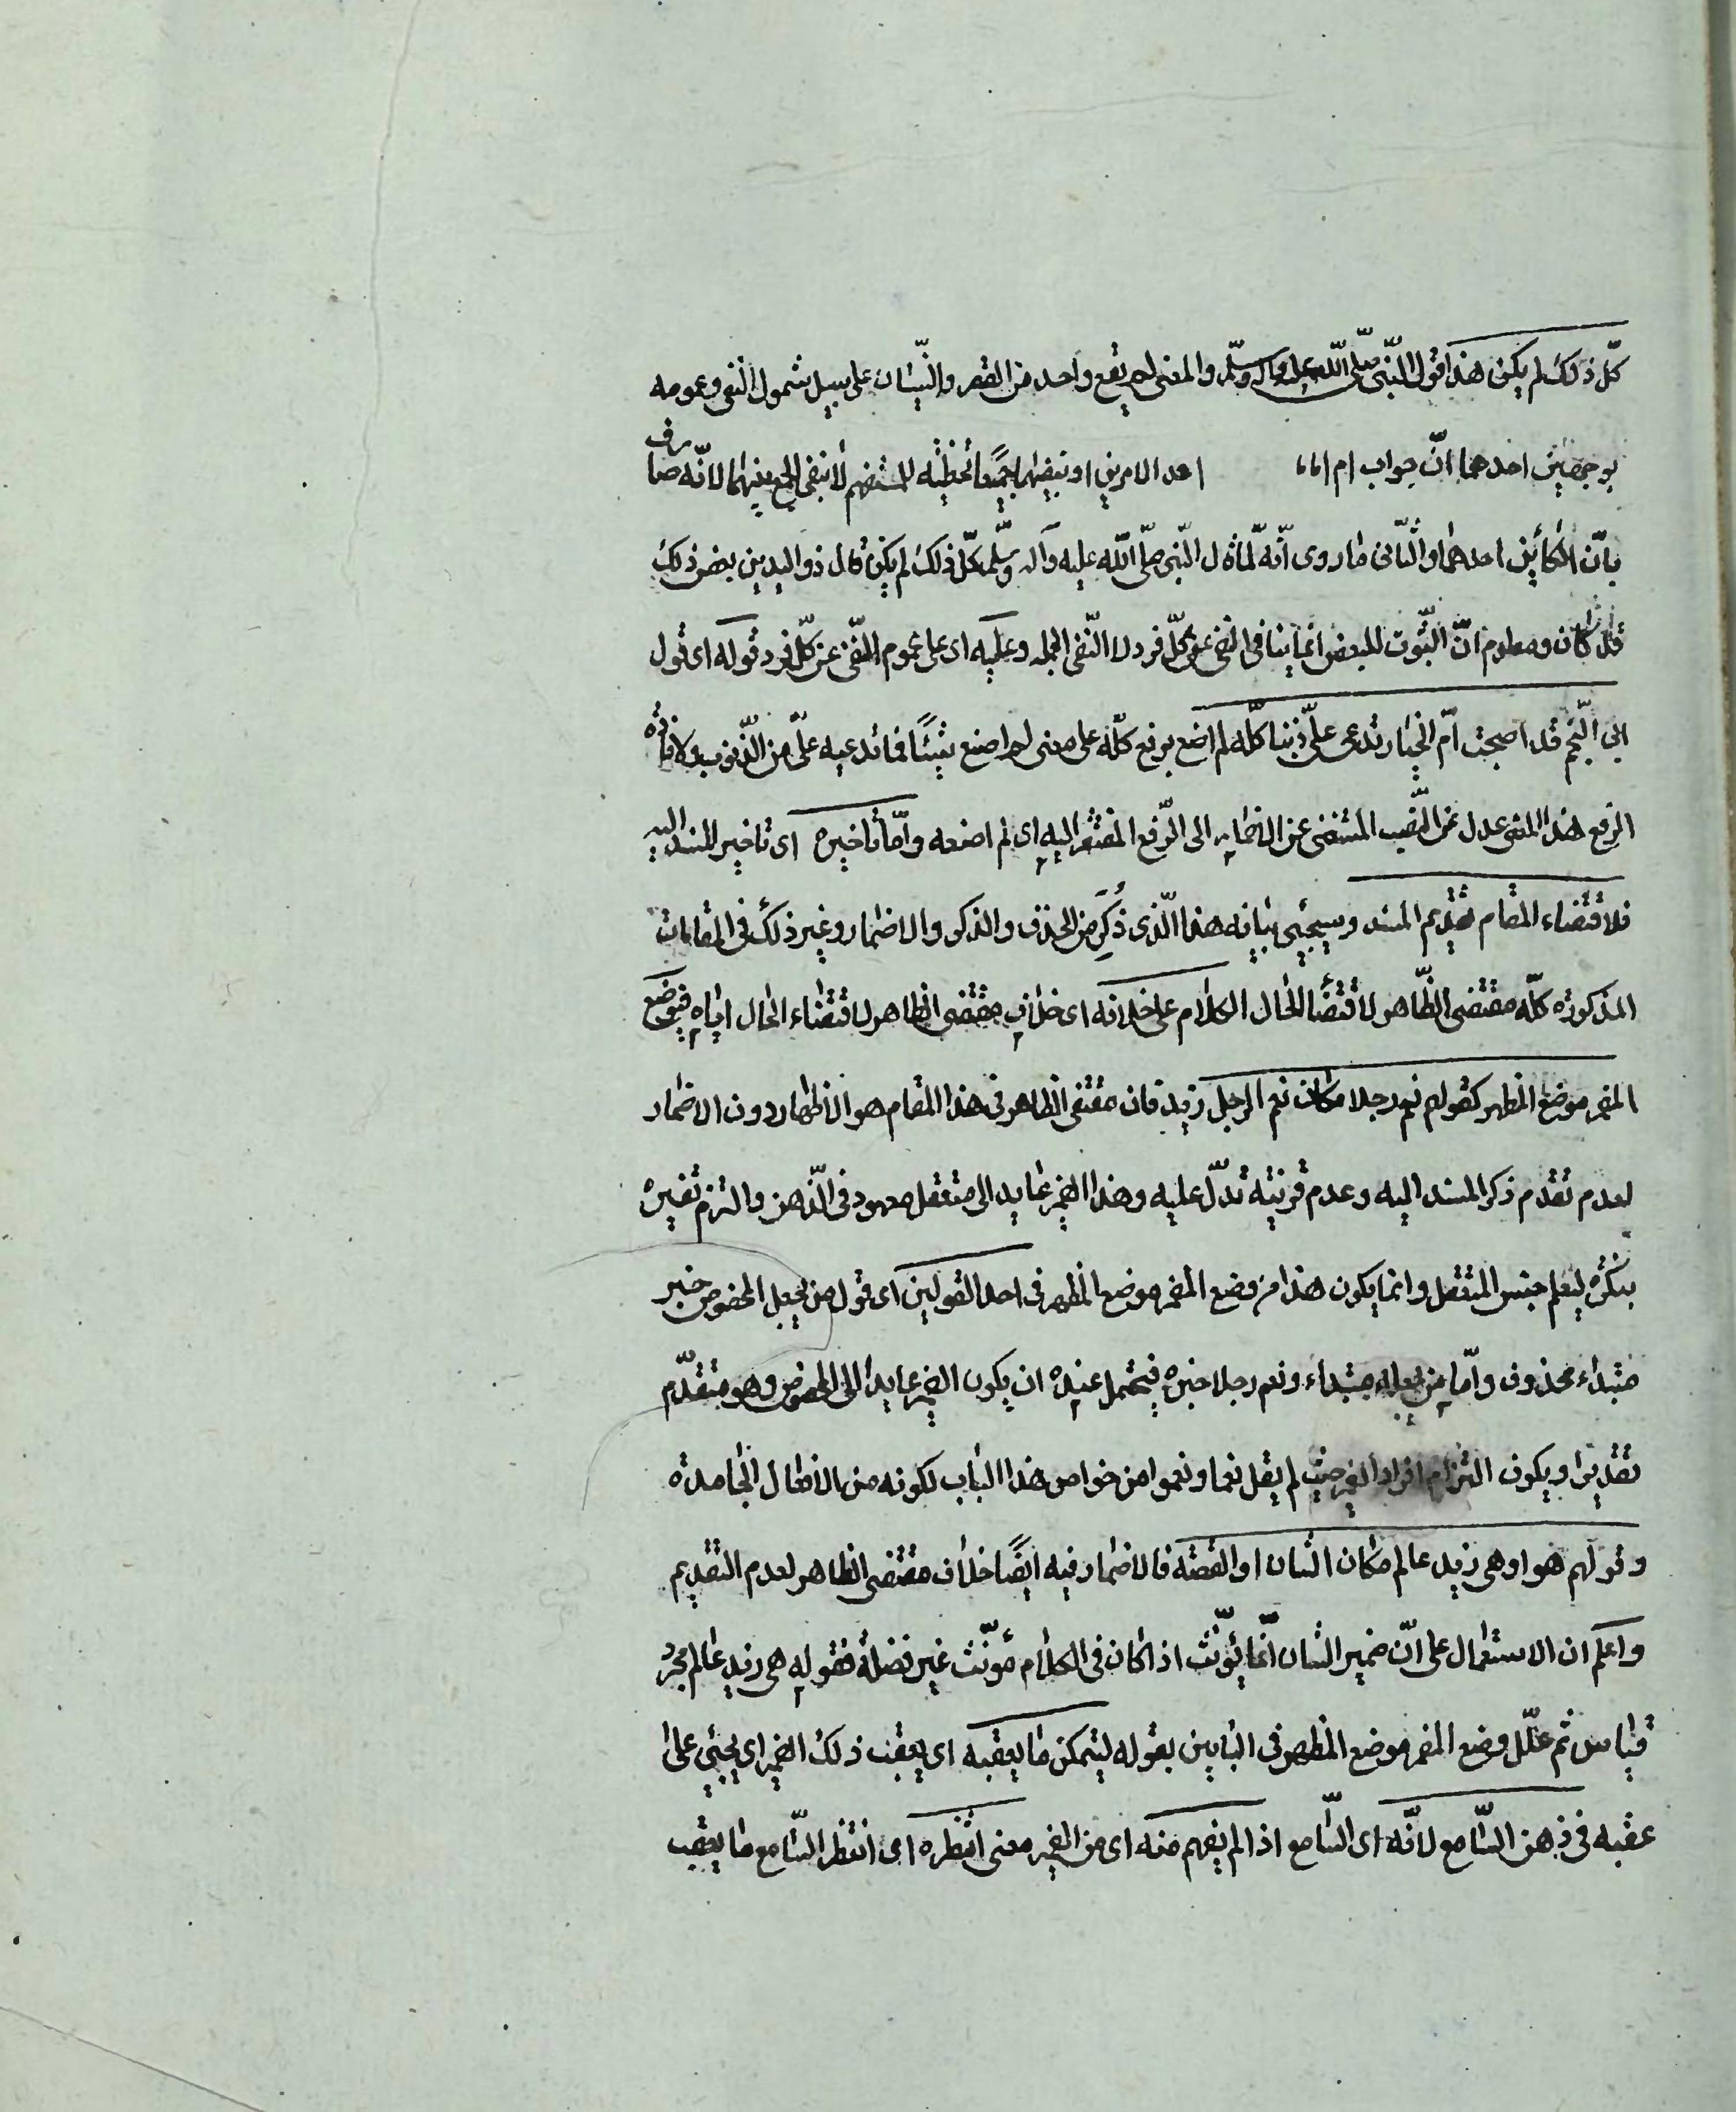 كلّ ذلك لم يكن هذا قول النّبى صلّى اللّه عليه وآله وسلّم والمعنى لم يقع واحد من القصر والنّسيان على سبيل شمول النّفى وعمومه
بوجهين احدهما انّ جواب ام امّا احد الامرين او بنفيهما جميعًا تخطئة للمستفهم لا بنفى الجمع بينهما لانّه عارف
بانّ الكائن احدهما والثّانى ما روى انّه لمّا قال النّبى صلّى اللّه عليه وآله وسلّم كلّ ذلك لم يكن قال ذو اليدين بعض ذلك
قد كان ومعلوم انّ الثّبوت للبعض انّما ينافى النّفى عن كلّ فرد لا النّفى الجملة وعليه اى على عموم النّفى عن كلّ فرد قوله اى قول
ابى النّجم قد اصبحت امّ الخيار تدعى علىّ ذنبا كلّه لم اصنع برفع كلّه على معنى لم اصنع شيئًا مما تدعيه علىّ من الذّنوب ولافادة
الرفع هذا المعنى عدل عن النّصب المستغنى عن الاضمار الى الرّفع المفتقر اليه اى لم اصنعه وامّا تاخيره اى تاخير المسند اليه
فلاقتضاء المقام تقديم المسند وسيجيئ بيانه هذا الّذى ذكر من الحذف والذكر والاضمار وغير ذلك فى المقامات
المذكورة كلّه مقتضى الظّاهر لاقتضا الحال الكلام على خلافه اى خلاف مقتضى الظاهر لاقتضاء الحال ايّاه فيوضع
المضمر موضع المظهر كقولهم نعم رجلا مكان نعم الرجل زيد فان مقتضى الظاهر فى هذا المقام هو الاظهار دون الاضمار
لعدم تقدم ذكر المسند اليه وعدم قرينة تدلّ عليه وهذا الضمير عايد الى متعقل معهود فى الذّهن والتزم تفسيره
بنكرة ليعلم جنس المتعقل وانما يكون هذا من وضع المضمر موضع المظهر فى احد القولين اى قول من يجعل المخصوص خبر
مبتداء محذوف وامّا من يجعله مبتداء ونعم رجلا خبره فيحتمل عنده ان يكون الضمير عايدا الى المخصوص وهو متقدّم
تقديرا ويكون التزام افراد الضمير حيث لم يقل نعما ونعموا من خواص هذا الباب لكونه من الافعال الجامدة
وقولهم هو او هى زيد عالم مكان الشان او القصّة فالاضمار فيه ايضًا خلاف مقتضى الظاهر لعدم التقديم
واعلم ان الاستعمال على انّ ضمير الشان انّما يؤنّث اذا كان فى الكلام مؤنّث غير فضلة فقوله هى زيد عالم مجرد
قياس ثم علّل وضع المضمر موضع المظهر فى البابين بقوله ليتمكن ما يعقبه اى يعقب ذلك الضمير اى يجيئ على
عقبه فى ذهن السّامع لانّه اى السّامع اذا لم يفهم منه اى من الضمير معنى انتظره اى انتظر السّامع ما يعقب